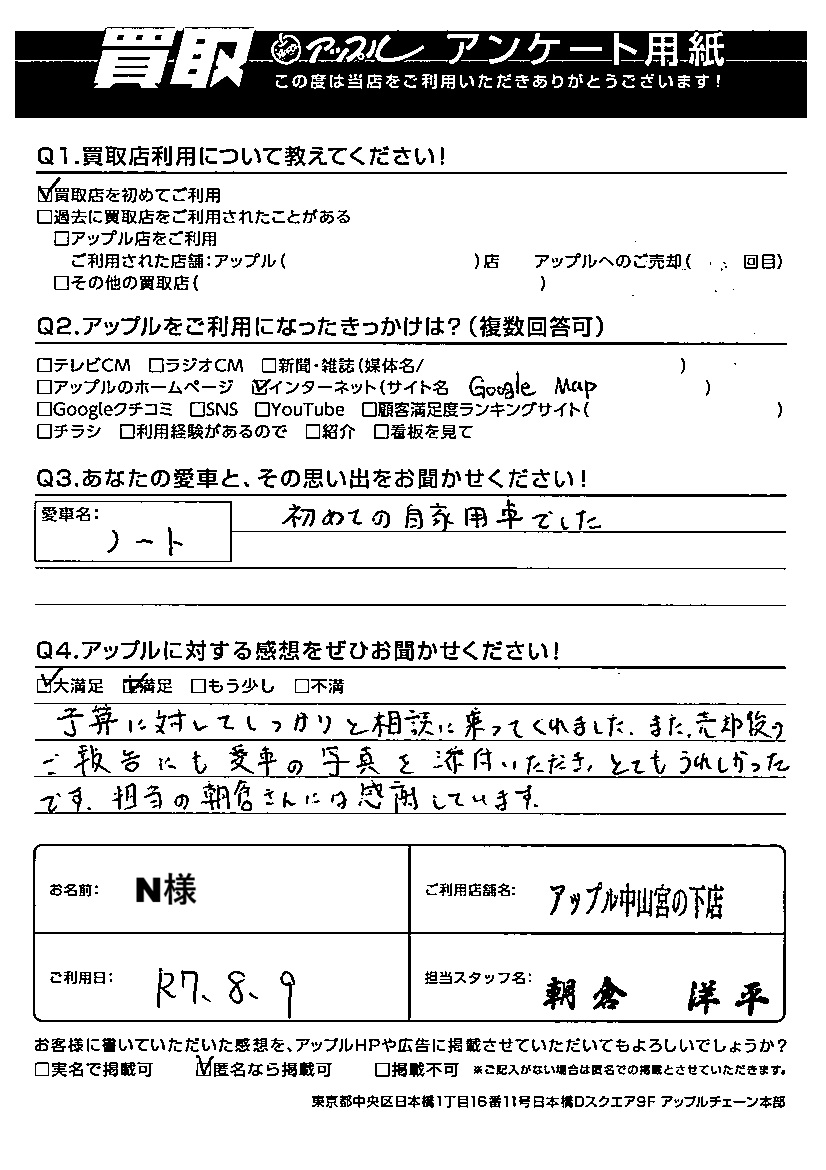 買取 アップル アンケート用紙
この度は当店をご利用いただきありがとうございます!
Q1.買取店利用について教えてください!
☑買取店を初めてご利用
□過去に買取店をご利用されたことがある
□アップル店をご利用
ご利用された店舗:アップル( )店 アップルへのご売却( 回目)
□その他の買取店( )
Q2.アップルをご利用になったきっかけは?(複数回答可)
□テレビCM □ラジオCM □新聞・雑誌(媒体名/ )
□アップルのホームページ ☑インターネット(サイト名 Google Map )
□Googleクチコミ □SNS □YouTube □顧客満足度ランキングサイト( )
□チラシ □利用経験があるので □紹介 □看板を見て
Q3.あなたの愛車と、その思い出をお聞かせください!
愛車名: ノート
初めての自家用車でした
Q4.アップルに対する感想をぜひお聞かせください!
☑大満足 ☑満足 □もう少し □不満
予算に対してしっかりと相談に乗ってくれました。また、売却後の
ご報告にも愛車の写真を添付いただき、とてもうれしかった
です。担当の朝倉さんには感謝しています。
お名前: N様
ご利用店舗名: アップル中山宮の下店
ご利用日: R7、8、9
担当スタッフ名: 朝倉 洋平
お客様に書いていただいた感想を、アップルHPや広告に掲載させていただいてもよろしいでしょうか?
□実名で掲載可 ☑匿名なら掲載可 □掲載不可 ※ご記入がない場合は匿名での掲載とさせていただきます。
東京都中央区日本橋1丁目16番11号日本橋Dスクエア9F アップルチェーン本部